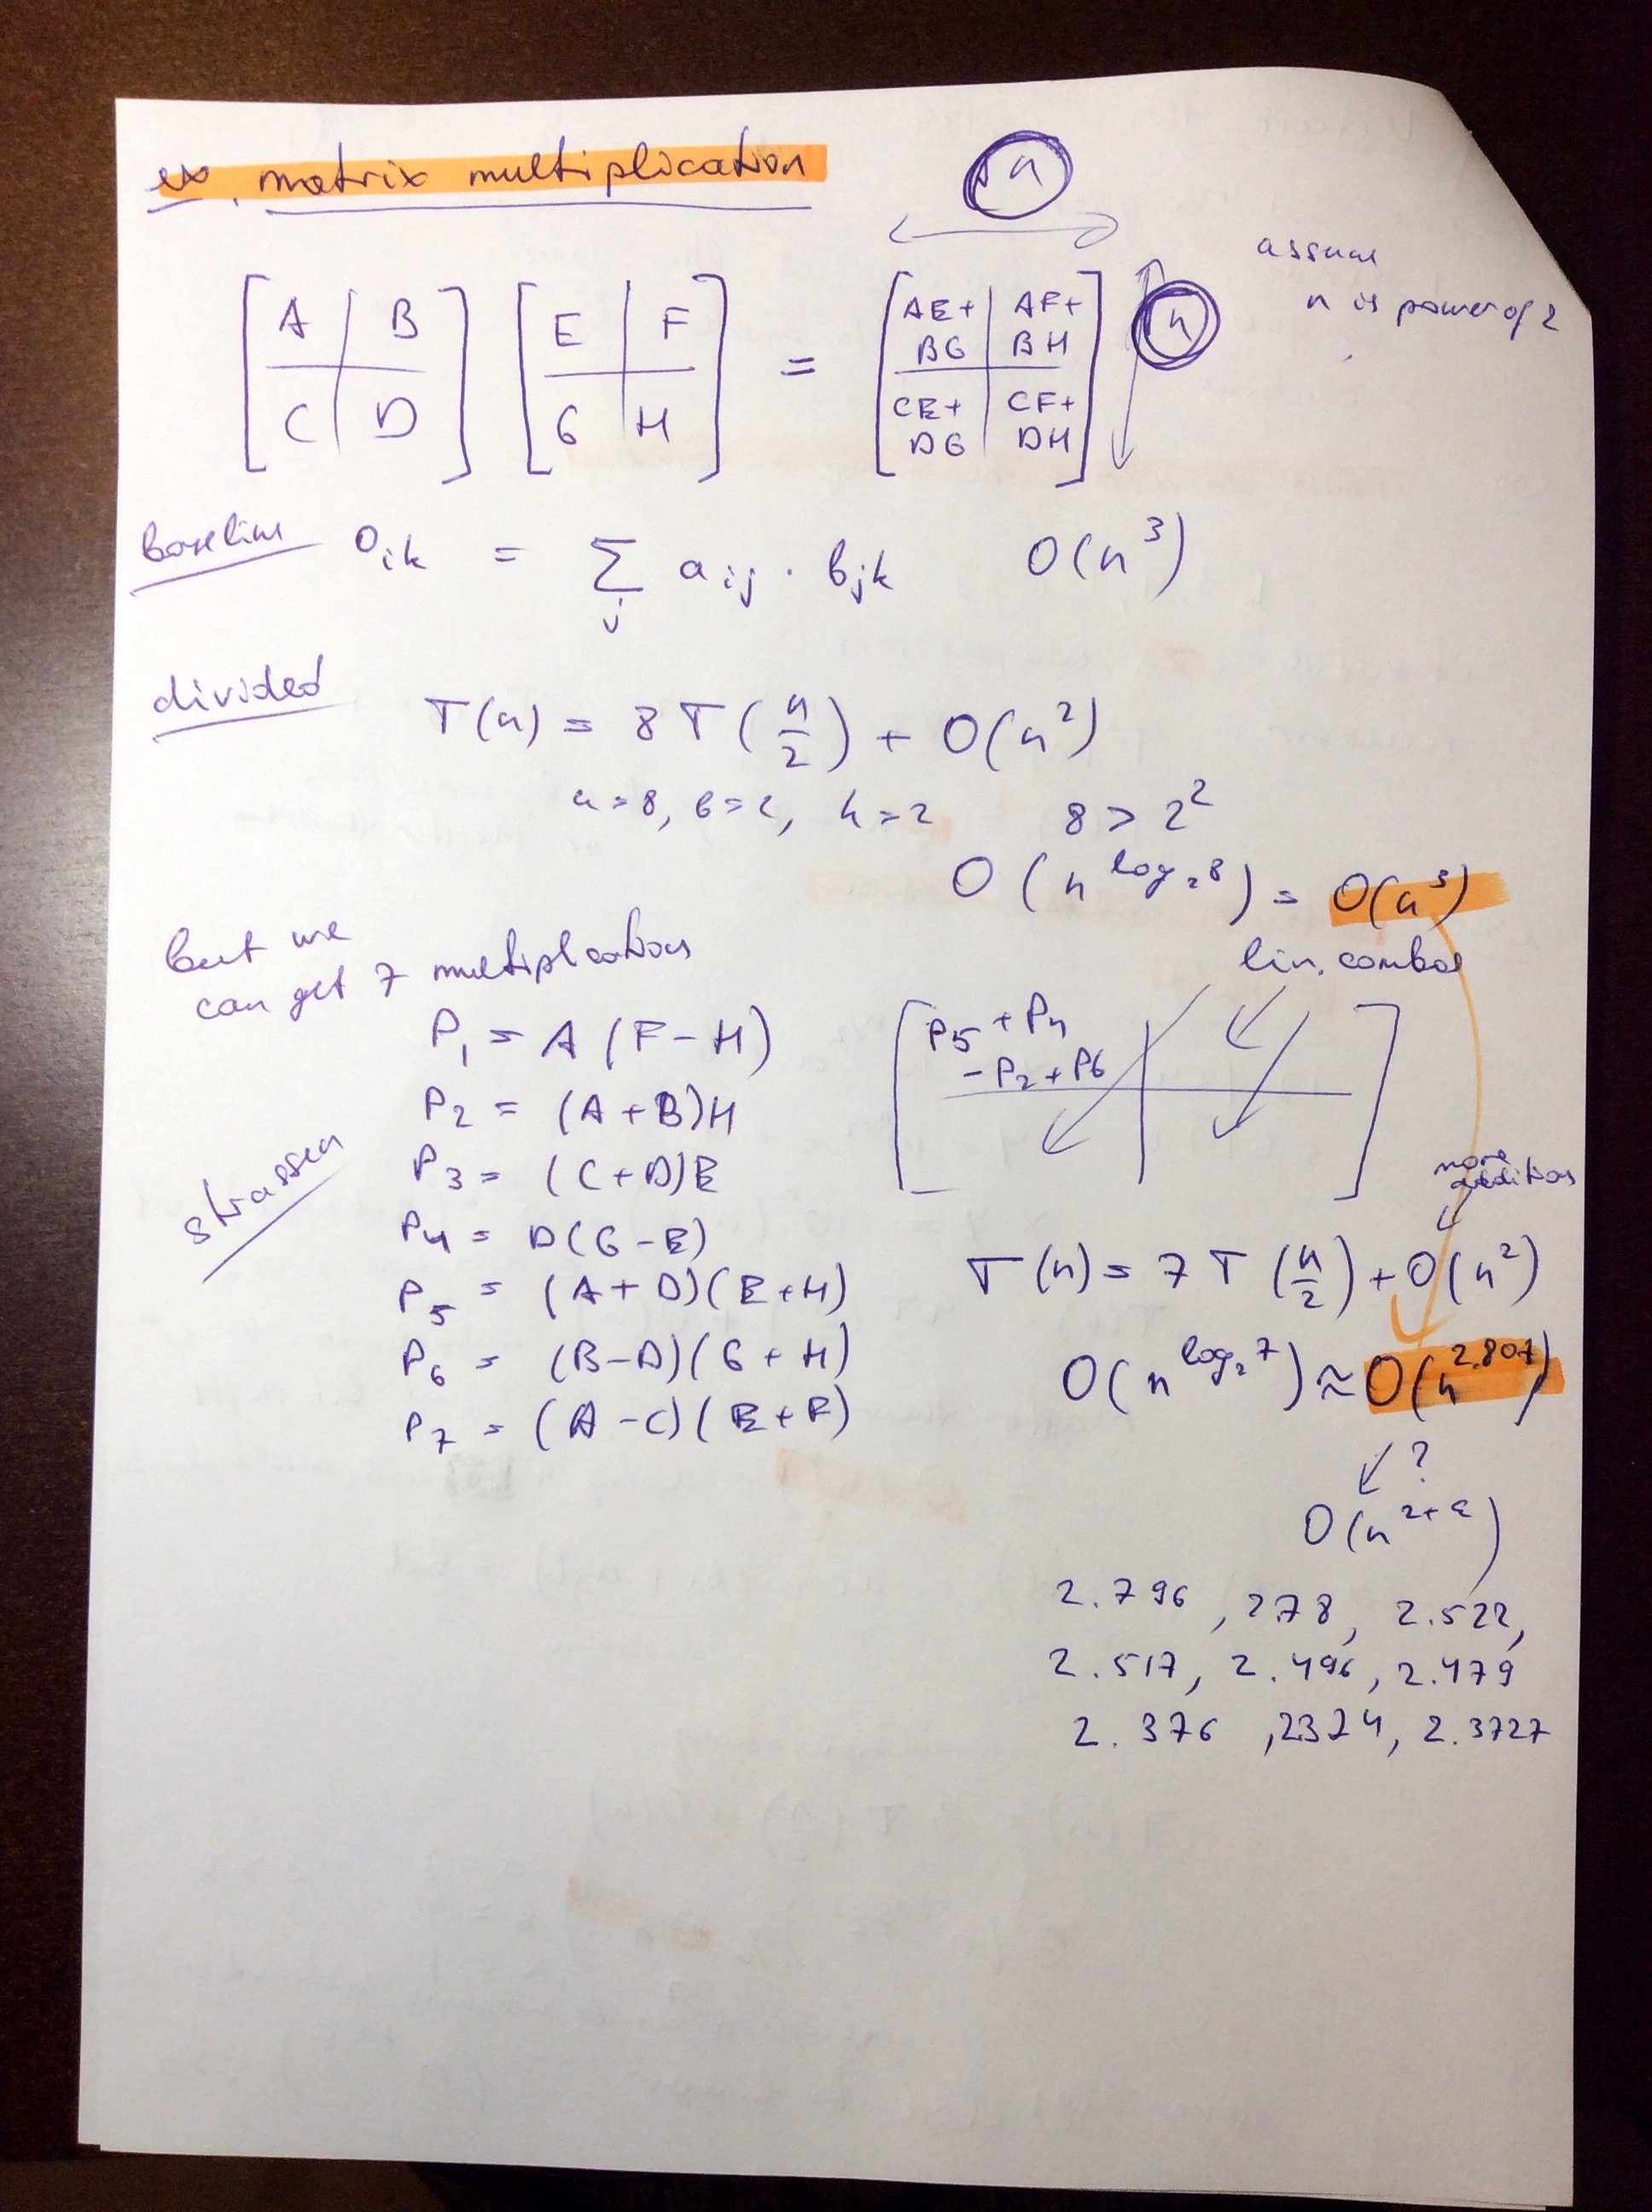 ex. matrix multiplication
n
assume
n is power of 2
[ A | B ] [ E | F ] = [ AE+ BG | AF+ BH ] n
[ C | D ] [ G | H ] [ CE+ DG | CF+ DH ]
baseline O_ik = Σ_j a_ij · b_jk O(n^3)
divided
T(n) = 8 T(n/2) + O(n^2)
a=8, b=2, k=2 8 > 2^2
O(n^log_2 8) = O(n^3)
but we
can get 7 multiplications
lin. combos
P_1 = A (F - H)
P_2 = (A + B)H
P_3 = (C + D)E
P_4 = D(G - E)
P_5 = (A + D)(E + H)
P_6 = (B - D)(G + H)
P_7 = (A - C)(E + F)
strassen
P_5 + P_4
- P_2 + P_6
more
additions
T(n) = 7 T(n/2) + O(n^2)
O(n^log_2 7) ≈ O(n^2.807)
?
O(n^2+ε)
2.796, 2.78, 2.522,
2.517, 2.496, 2.479
2.376, 2.374, 2.3727